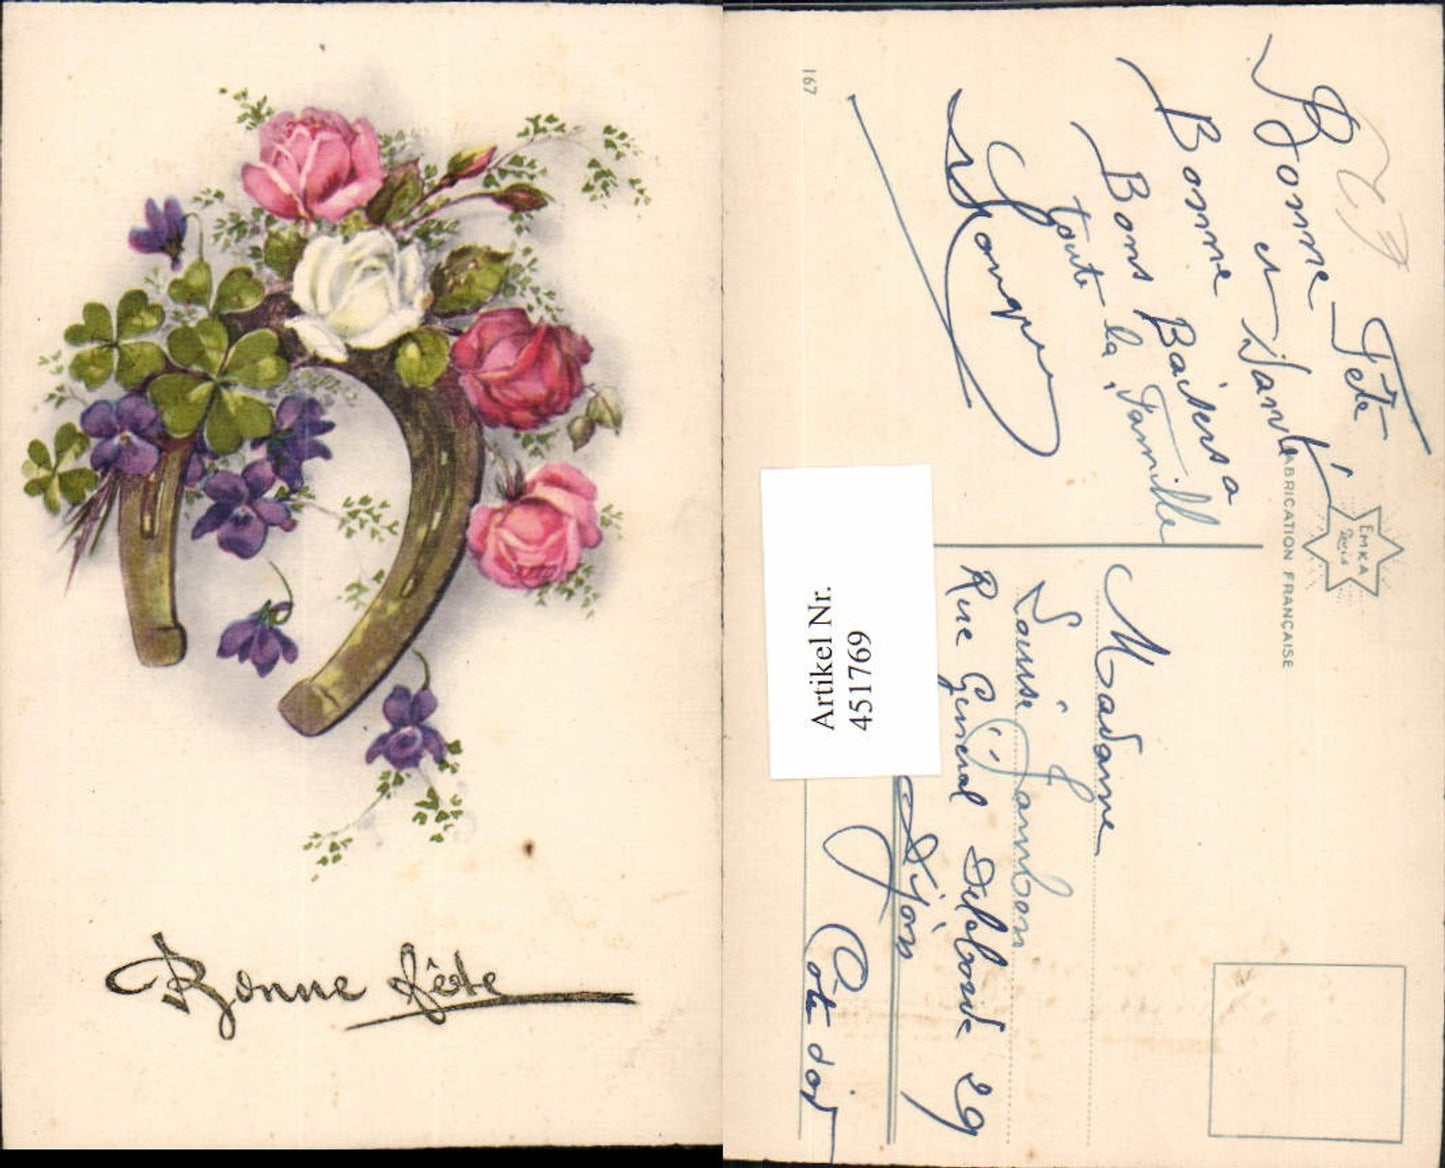 Bonne fête
167
Bonne Fête
et Santé
Bonne
Bons Baisers à
toute la Famille
EMKA
Paris
FABRICATION FRANÇAISE
Artikel Nr.
451769
Madame
Louise Jambon
Rue Général Delaborde 29
Dijon
Côte d'or